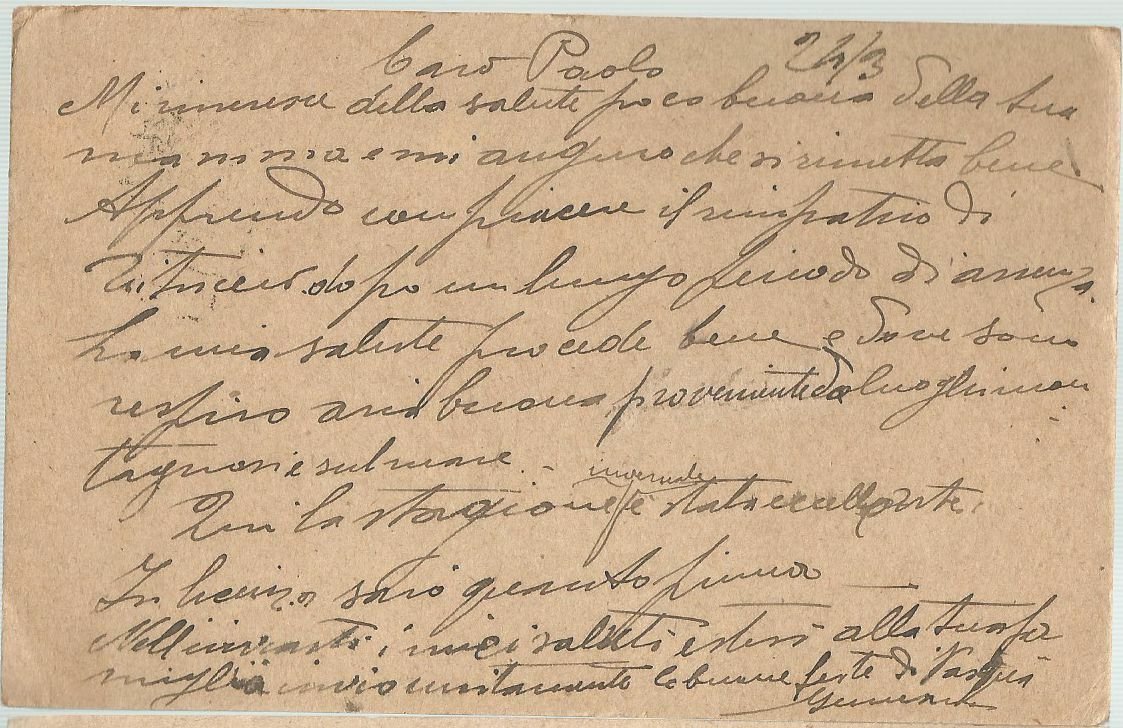 Caro Paolo 24/3
Mi rincresce della salute poco buona della tua
mamma e mi auguro che si rimetta bene.
Apprendo con piacere il rimpatrio di
dopo un lungo periodo di assenza.
La mia salute procede bene e dove sono
respiro aria buona proveniente da luoghi mon
tagnosi e sul mare. -
invernale
Qui la stagione è stata eccellente.
In licenza sarò quanto prima
Nell'inviarti i miei saluti estesi alla tua fa
miglia invio unitamente le buone feste di Pasqua